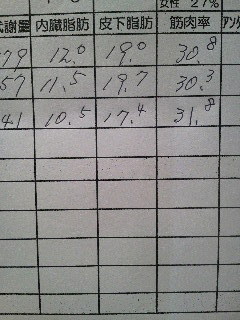 女性 27%
代謝量 内臓脂肪 皮下脂肪 筋肉率
79 12.0 19.0 30.8
57 11.5 19.7 30.3
41 10.5 17.4 31.8